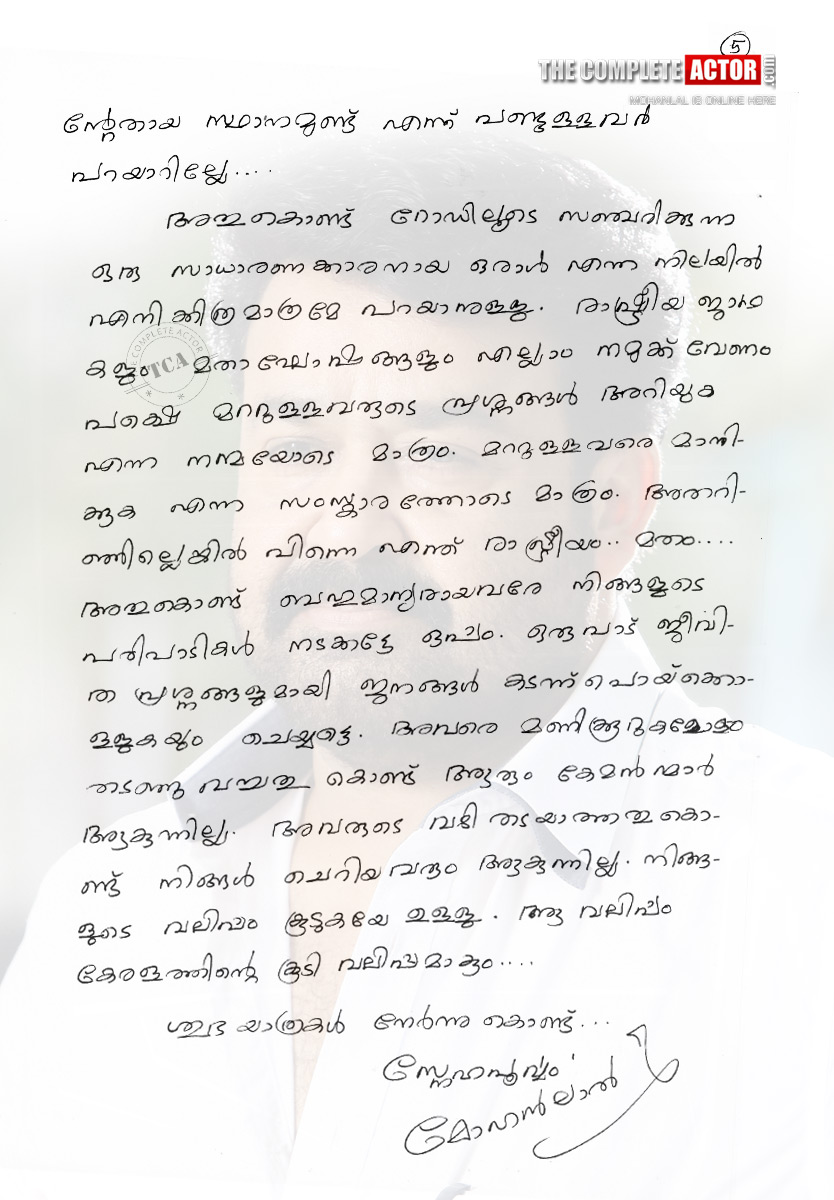 5
THE COMPLETE ACTOR .com
MOHANLAL IS ONLINE HERE
ന്റേതായ സ്ഥാനമുണ്ട് എന്ന് പണ്ടുള്ളവർ
പറയാറില്ലേ....
അതുകൊണ്ട് റോഡിലൂടെ സഞ്ചരിക്കുന്ന
ഒരു സാധാരണക്കാരനായ ഒരാൾ എന്ന നിലയിൽ
എനിക്കിത്രമാത്രമേ പറയാനുള്ളു. രാഷ്ട്രീയ ജാഥ
കളും മതാഘോഷങ്ങളും എല്ലാം നമുക്ക് വേണം
പക്ഷെ മറ്റുള്ളവരുടെ പ്രശ്നങ്ങൾ അറിയുക
എന്ന നന്മയോടെ മാത്രം. മറ്റുള്ളവരെ മാനി-
ക്കുക എന്ന സംസ്ക്കാരത്തോടെ മാത്രം. അതറി-
ഞ്ഞില്ലെങ്കിൽ പിന്നെ എന്ത് രാഷ്ട്രീയം.. മതം....
അതുകൊണ്ട് ബഹുമാന്യരായവരേ നിങ്ങളുടെ
പരിപാടികൾ നടക്കട്ടേ ഒപ്പം. ഒരുപാട് ജീവി-
ത പ്രശ്നങ്ങളുമായി ജനങ്ങൾ കടന്ന് പൊയ്ക്കൊ-
ള്ളുകയും ചെയ്യട്ടെ. അവരെ മണിക്കൂറുകളോളം
തടഞ്ഞു വച്ചതു കൊണ്ട് ആരും കേമൻ‌മാർ
ആകുന്നില്ല. അവരുടെ വഴി തടയാത്തതു കൊ-
ണ്ട് നിങ്ങൾ ചെറിയവരും ആകുന്നില്ല. നിങ്ങ-
ളുടെ വലിപ്പം കൂടുകയേ ഉള്ളു. ആ വലിപ്പം
കേരളത്തിന്റെ കൂടി വലിപ്പമാകും....
ശുഭ യാത്രകൾ നേർന്നു കൊണ്ട്...
സ്നേഹപൂർവ്വം
മോഹൻലാൽ
THE COMPLETE ACTOR
TCA